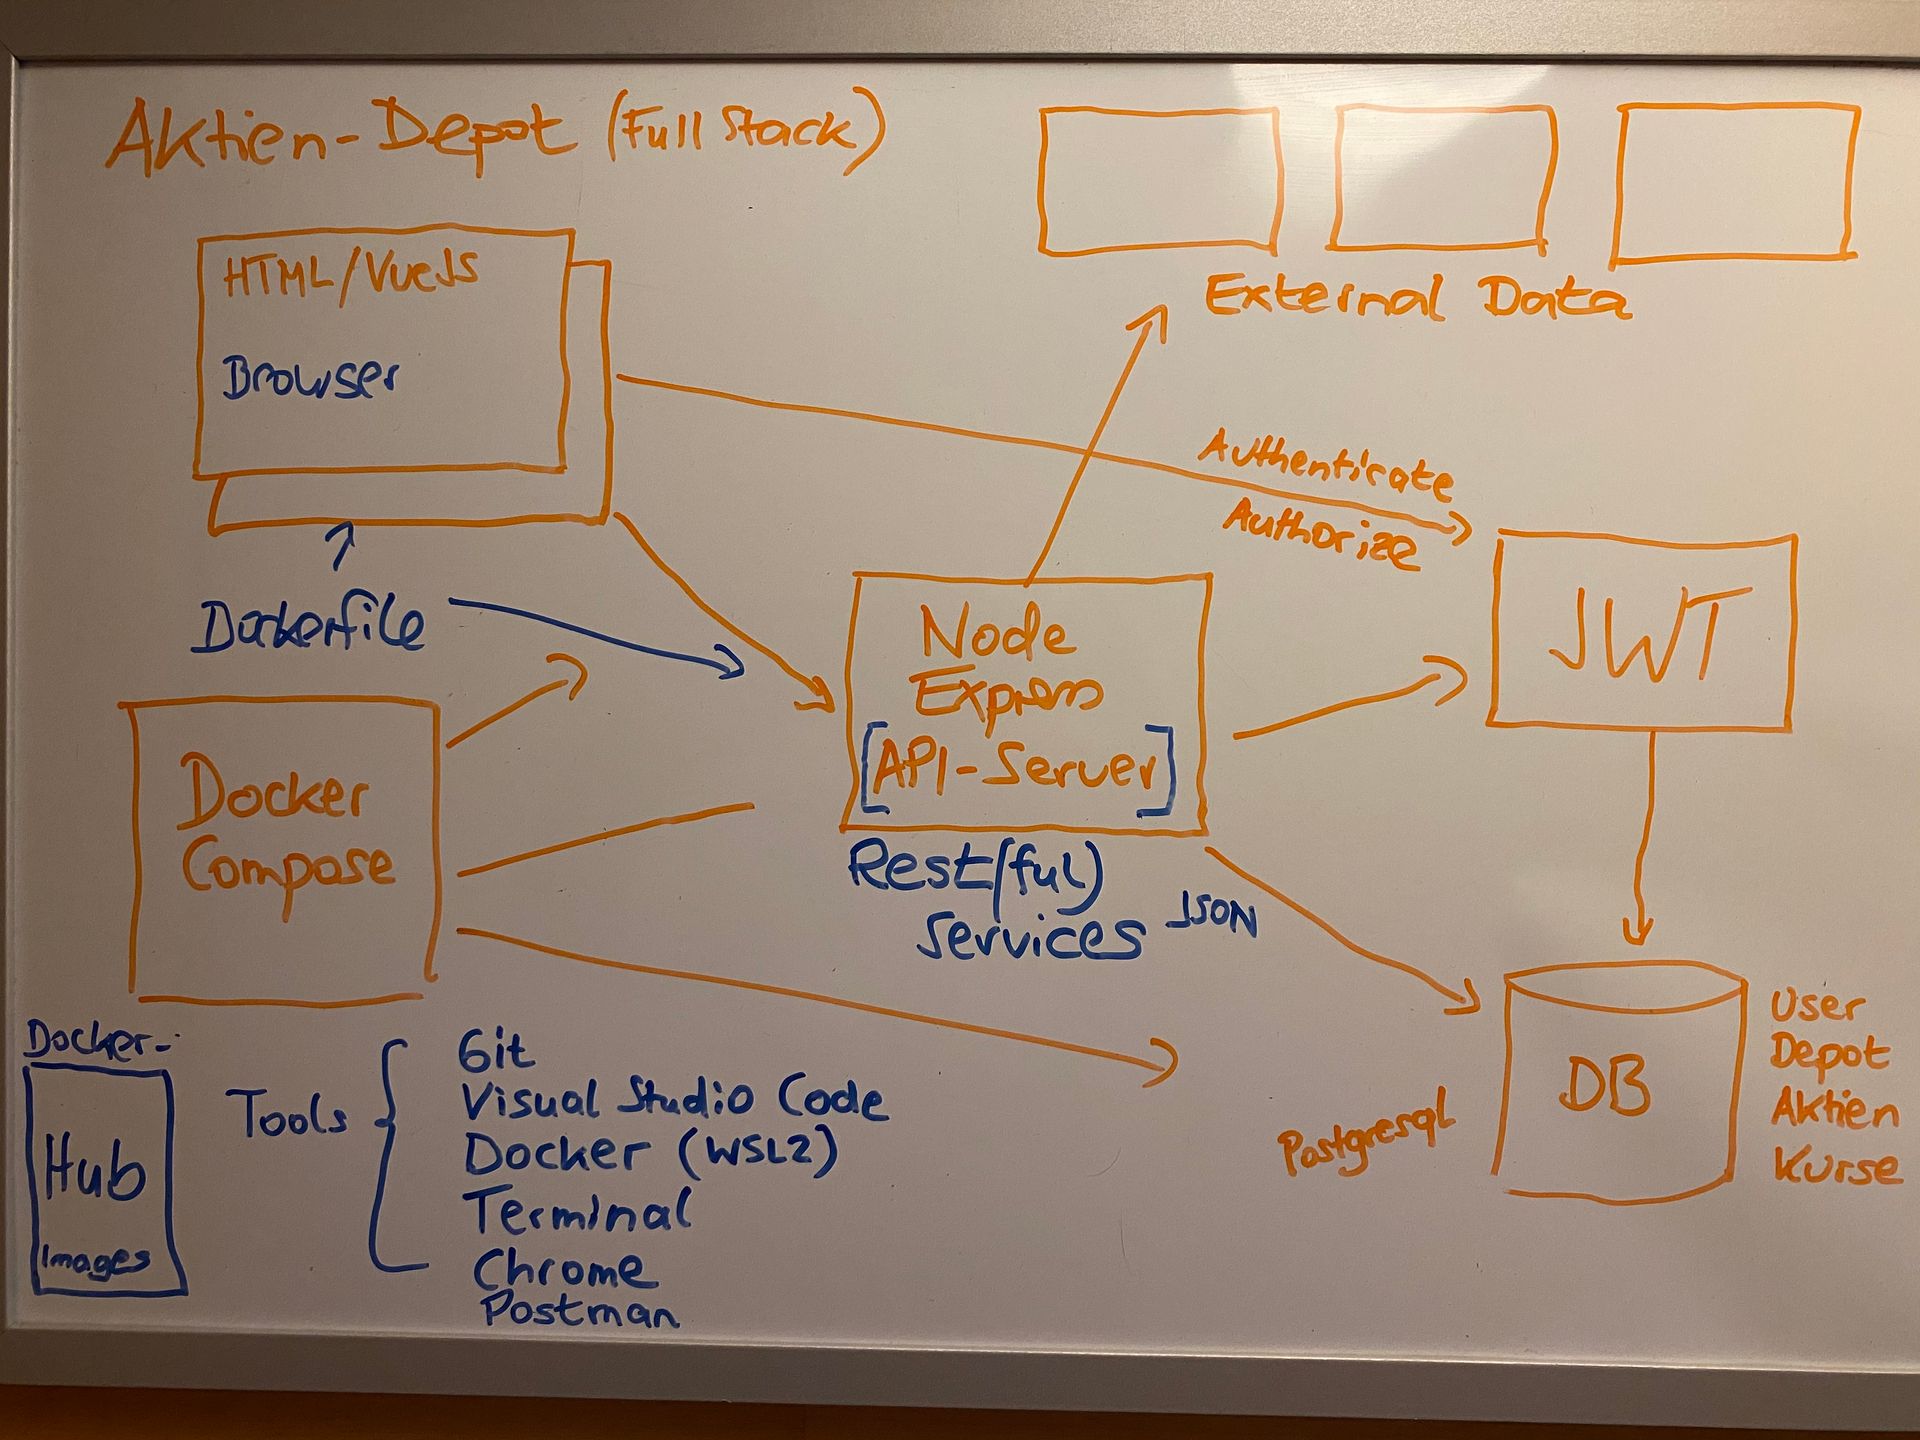 Aktien-Depot (Full Stack)
HTML/VueJS
Browser
External Data
Authenticate
Authorize
Dockerfile
Node
Express
[API-Server]
JWT
Docker
Compose
Rest(ful)
Services JSON
DB
User
Depot
Aktien
Kurse
Postgresql
Docker-
Hub
Images
Tools {
Git
Visual Studio Code
Docker (WSL2)
Terminal
Chrome
Postman